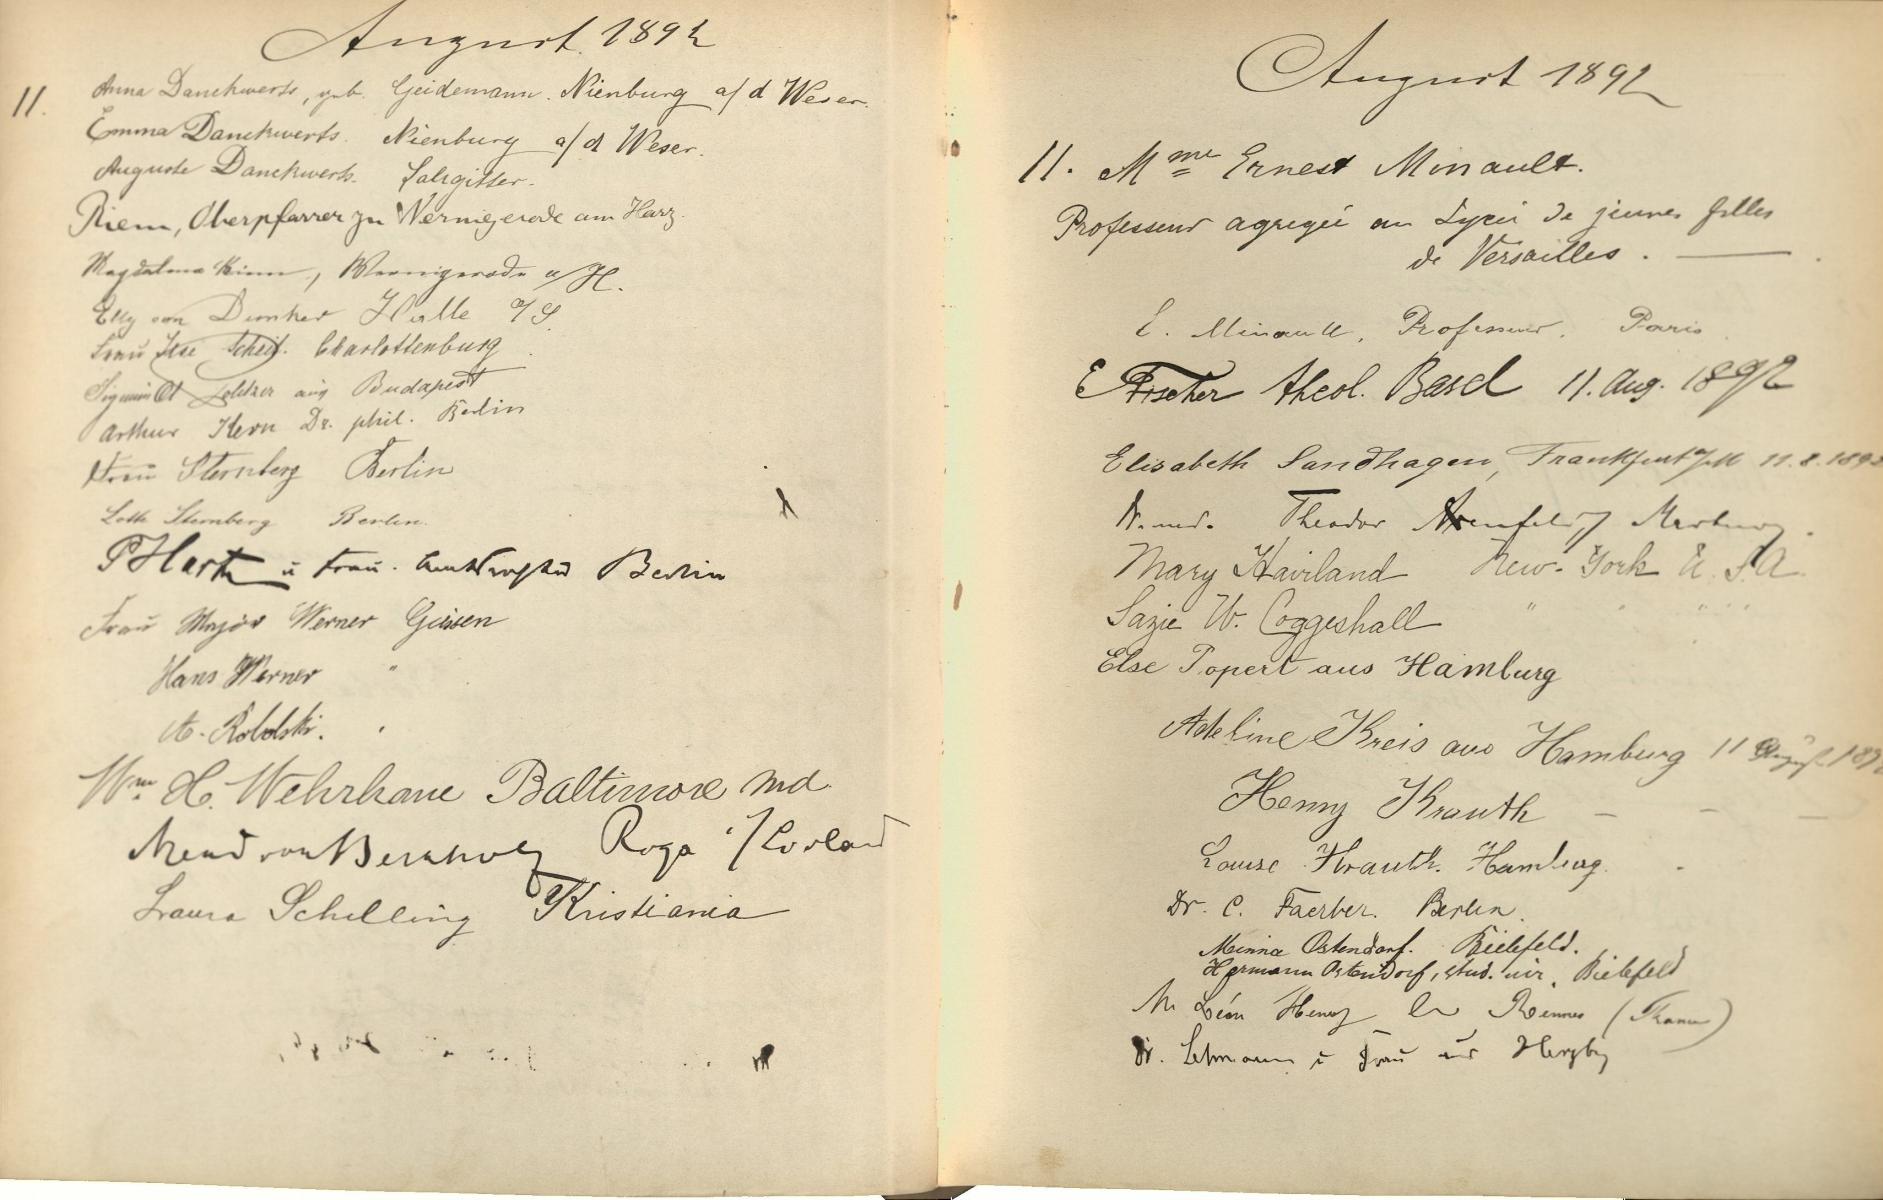 August 1892
11. Anna Danckwerts, geb. Geidemann. Nienburg a/d Weser.
Emma Danckwerts. Nienburg a/d Weser.
Auguste Danckwerts. Salzgitter.
Riem, Oberpfarrer zu Wernigerode am Harz.
Magdalena Riem, Wernigerode a/H.
Elly von Dunker Halle a/S.
Frau Ilse Scheif. Charlottenburg
Sigmund aus Budapest
Arthur Kern Dr. phil. Berlin
Frau Sternberg Berlin
Lotte Sternberg Berlin.
u Frau. Berlin
Frau Major Werner Giessen
Hans Werner "
A. Robolski. "
Wm. H. Wehrhane Baltimore Md.
von
Laura Schelling Kristiania
August 1892
11. Mme Ernest Minault.
Professeur agregée au Lycée de jeunes filles
de Versailles.
E. Minault, Professeur. Paris
E Fischer theol. Basel 11. Aug. 1892
Elisabeth Sandhagen, Frankfurt a/M 11.8.1892
Dr. med. Theodor Axenfeld Marburg.
Mary Haviland New-York U.S.A.
Sazie W. Coggeshall " " " " "
Else Popert aus Hamburg
Adeline Kreis aus Hamburg 11 August 1892
Henny Krauth — — —
Louise Krauth. Hamburg.
Dr. C. Faerber. Berlin.
Minna Ostendorf. Bielefeld.
Hermann Ostendorf, stud. iur. Bielefeld
Mr Léon Henry de Rennes (France)
Dr. Lehmann u Frau aus